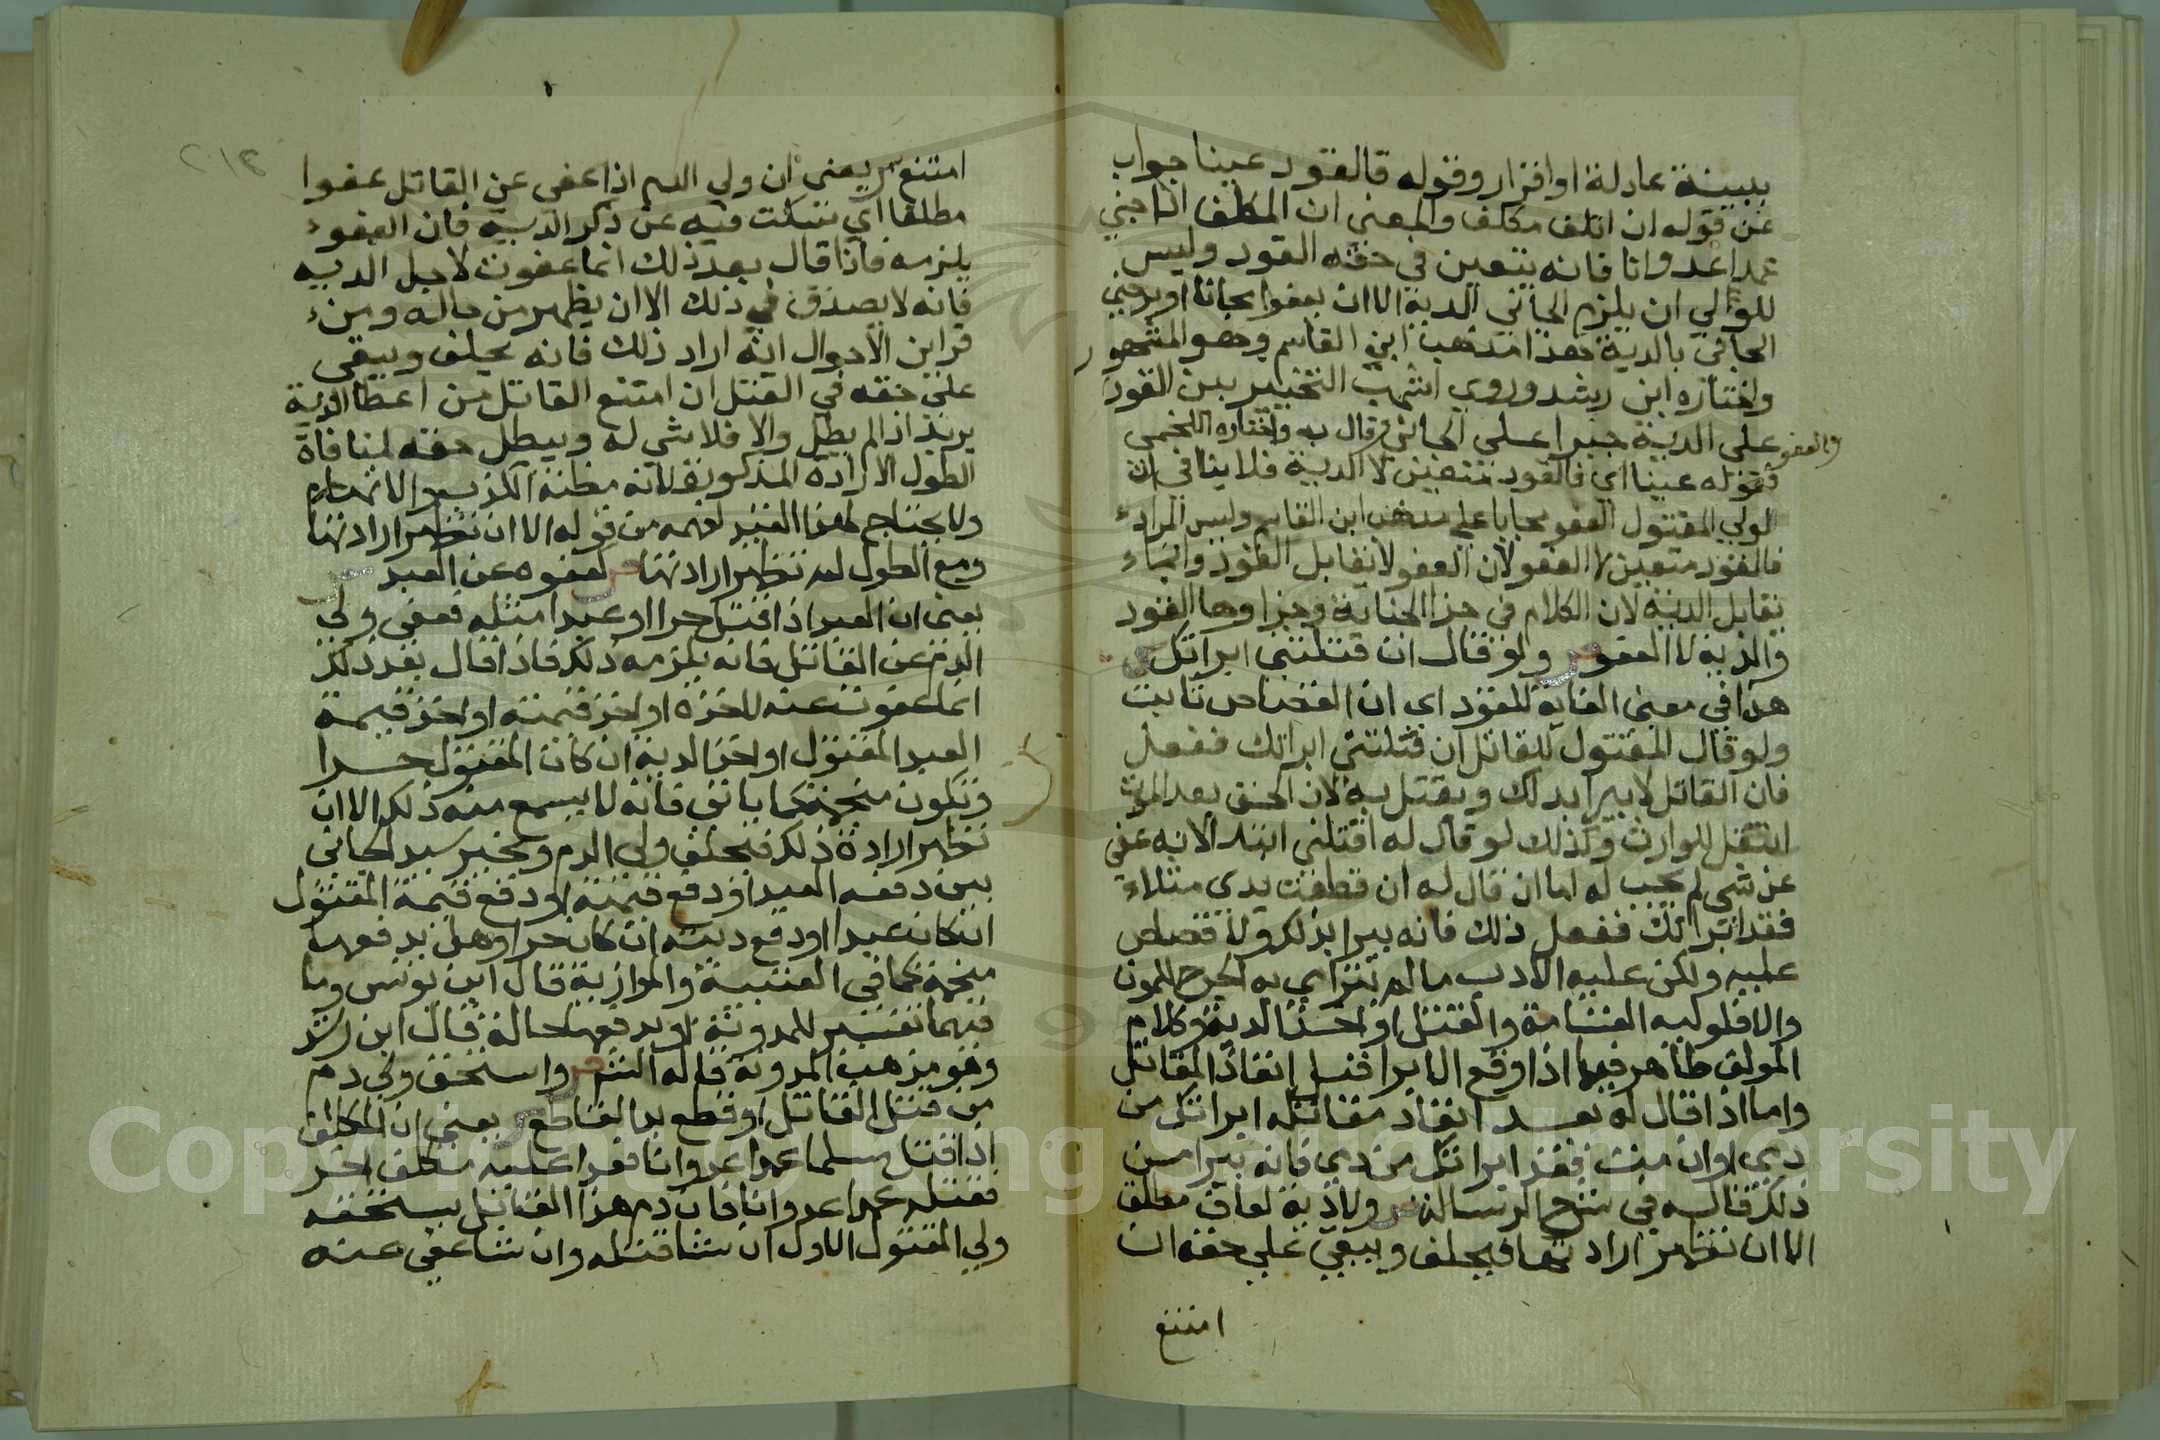 ببينة عادلة او اقرار وقوله فالقود عينا جواب
عن قوله ان اتلف مكلف والمعنى ان المكلف اذا جني
عمدا عدوانا فانه يتعين في حقه القود وليس
للولي ان يلزم الجاني الدية الا ان يعفوا مجانا او يرضي
الجاني بالدية هذا مذهب ابن القاسم وهو المشهور
واختاره ابن رشد وروي اشهب التخيير بين القود
والعفو على الدية جبرا على الجاني وقال به واختاره اللخمي
فقوله عينا اي فالقود متعين لا الدية فلا ينافي ان
لولي المقتول العفو مجانا علي مذهب ابن القاسم وليس المراد
فالقود متعين لا العفو لان العفو لا يقابل القود وانما
يقابل الدية لان الكلام في جزا الجناية وجزاوها القود
والدية لا العفو ص ولو قال ان قتلتني ابراتك ش
هذا في معنى الغاية للقود اي ان القصاص ثابت
ولو قال المقتول للقاتل ان قتلتني ابراتك ففعل
فان القاتل لا يبرا بذلك ويقتل به لان الحق بعد الموت
انتقل للوارث وكذلك لو قال له اقتلني ابتدا لانه عفي
عن شي لم يجب له اما ان قال له ان قطعت يدي مثلا
فقد ابراتك ففعل ذلك فانه يبرا بذلك ولا قصاص
عليه ولكن عليه الادب ما لم يترامي به الجرح للموت
والا فلوليه القسامة والقتل او اخذ الدية وكلام
المولف ظاهر فيما اذا وقع الابرا قبل انفاذ المقاتل
واما اذا قال له بعد انفاذ مقاتله ابراتك من
دمي او ان مت فقد ابراتك من دمي فانه يبرا من
ذلك قاله في شرح الرسالة ص ولا دية لعاف مطلق
الا ان تظهر ارادتها فيحلف ويبقى على حقه ان
امتنع
امتنع ش يعني ان ولي الدم اذا عفى عن القاتل عفوا
مطلقا اي سكت فيه عن ذكر الدية فان العفو
يلزمه فاذا قال بعد ذلك انما عفوت لاجل الدية
فانه لا يصدق في ذلك الا ان يظهر من حاله ومن
قراين الاحوال انه اراد ذلك فانه يحلف ويبقى
على حقه في القتل ان امتنع القاتل من اعطا الدية
يريد اذا لم يطل والا فلا شي له ويبطل حقه لمنافاة
الطول الارادة المذكورة لانه مظنة الكذب
ولا يحتاج لهذا القيد لفهمه من قوله الا ان تظهر ارادتها
ومع الطول لم تظهر ارادتها ص كعفوه عن العبد ش
يعني ان العبد اذا قتل حرا او عبدا مثله فعفى ولي
الدم عن القاتل فانه يلزمه ذلك فاذا قال بعد ذلك
انما عفوت عنه لاخذه او اخذ قيمته او اخذ قيمة
العبد المقتول او اخذ الدية ان كان المقتول حرا
وتكون منجمة كما ياتي فانه لا يسمع منه ذلك الا ان
تظهر ارادة ذلك فيحلف ولي الدم ويخير سيد الجاني
بين دفعه العبد او دفع قيمته او دفع قيمة المقتول
ان كان عبدا او دفع ديته ان كان حرا وهل يدفعها
منجمة كما في العتبية والموازية قال ابن يونس وما
فيهما تفسير للمدونة او يدفعها حالة قال ابن رشد
وهو مذهب المدونة قاله الشم ص واستحق ولي دم
من قتل القاتل او قطع يد القاطع ش يعني ان المكلف
اذا قتل مسلما عمدا عدوانا فعدا عليه مكلف اخر
فقتله عمدا عدوانا فان دم هذا القاتل يستحقه
ولي المقتول الاول ان شا قتله وان شا عفى عنه
٢١٤
Copyright © King Saud University